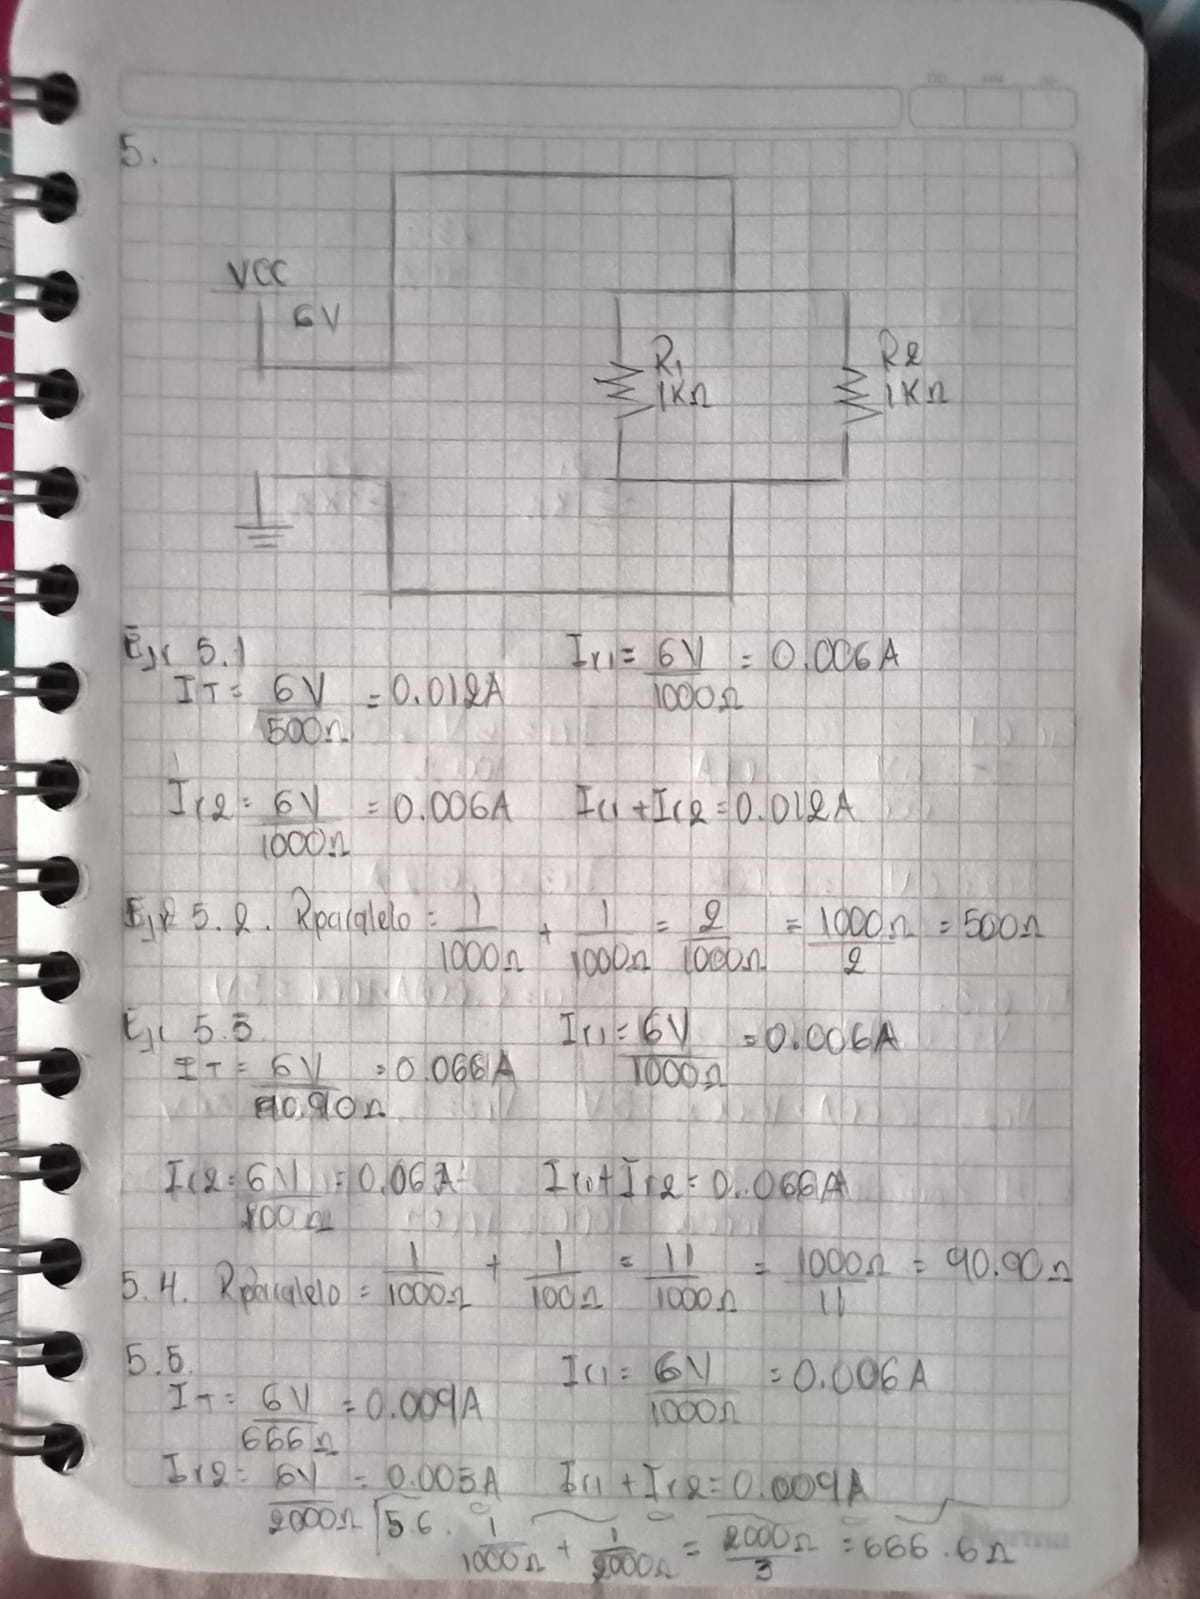 5.
VCC
6V
R1
1KΩ
R2
1KΩ
Ejr 5.1
IT = 6V/500Ω = 0.012A
Ir1 = 6V/1000Ω = 0.006A
Ir2 = 6V/1000Ω = 0.006A
Ir1 + Ir2 = 0.012A
Ejr 5.2. Rparalelo = 1/1000Ω + 1/1000Ω = 2/1000Ω = 1000Ω/2 = 500Ω
Ejr 5.3
IT = 6V/90.90Ω = 0.066A
Ir1 = 6V/1000Ω = 0.006A
Ir2 = 6V/100Ω = 0.06A
Ir1 + Ir2 = 0.066A
5.4. Rparalelo = 1/1000Ω + 1/100Ω = 11/1000Ω = 1000Ω/11 = 90.90Ω
5.5.
IT = 6V/666Ω = 0.009A
Ir1 = 6V/1000Ω = 0.006A
Ir2 = 6V/2000Ω = 0.003A
Ir1 + Ir2 = 0.009A
5.6. 1/1000Ω + 1/2000Ω = 2000Ω/3 = 666.6Ω